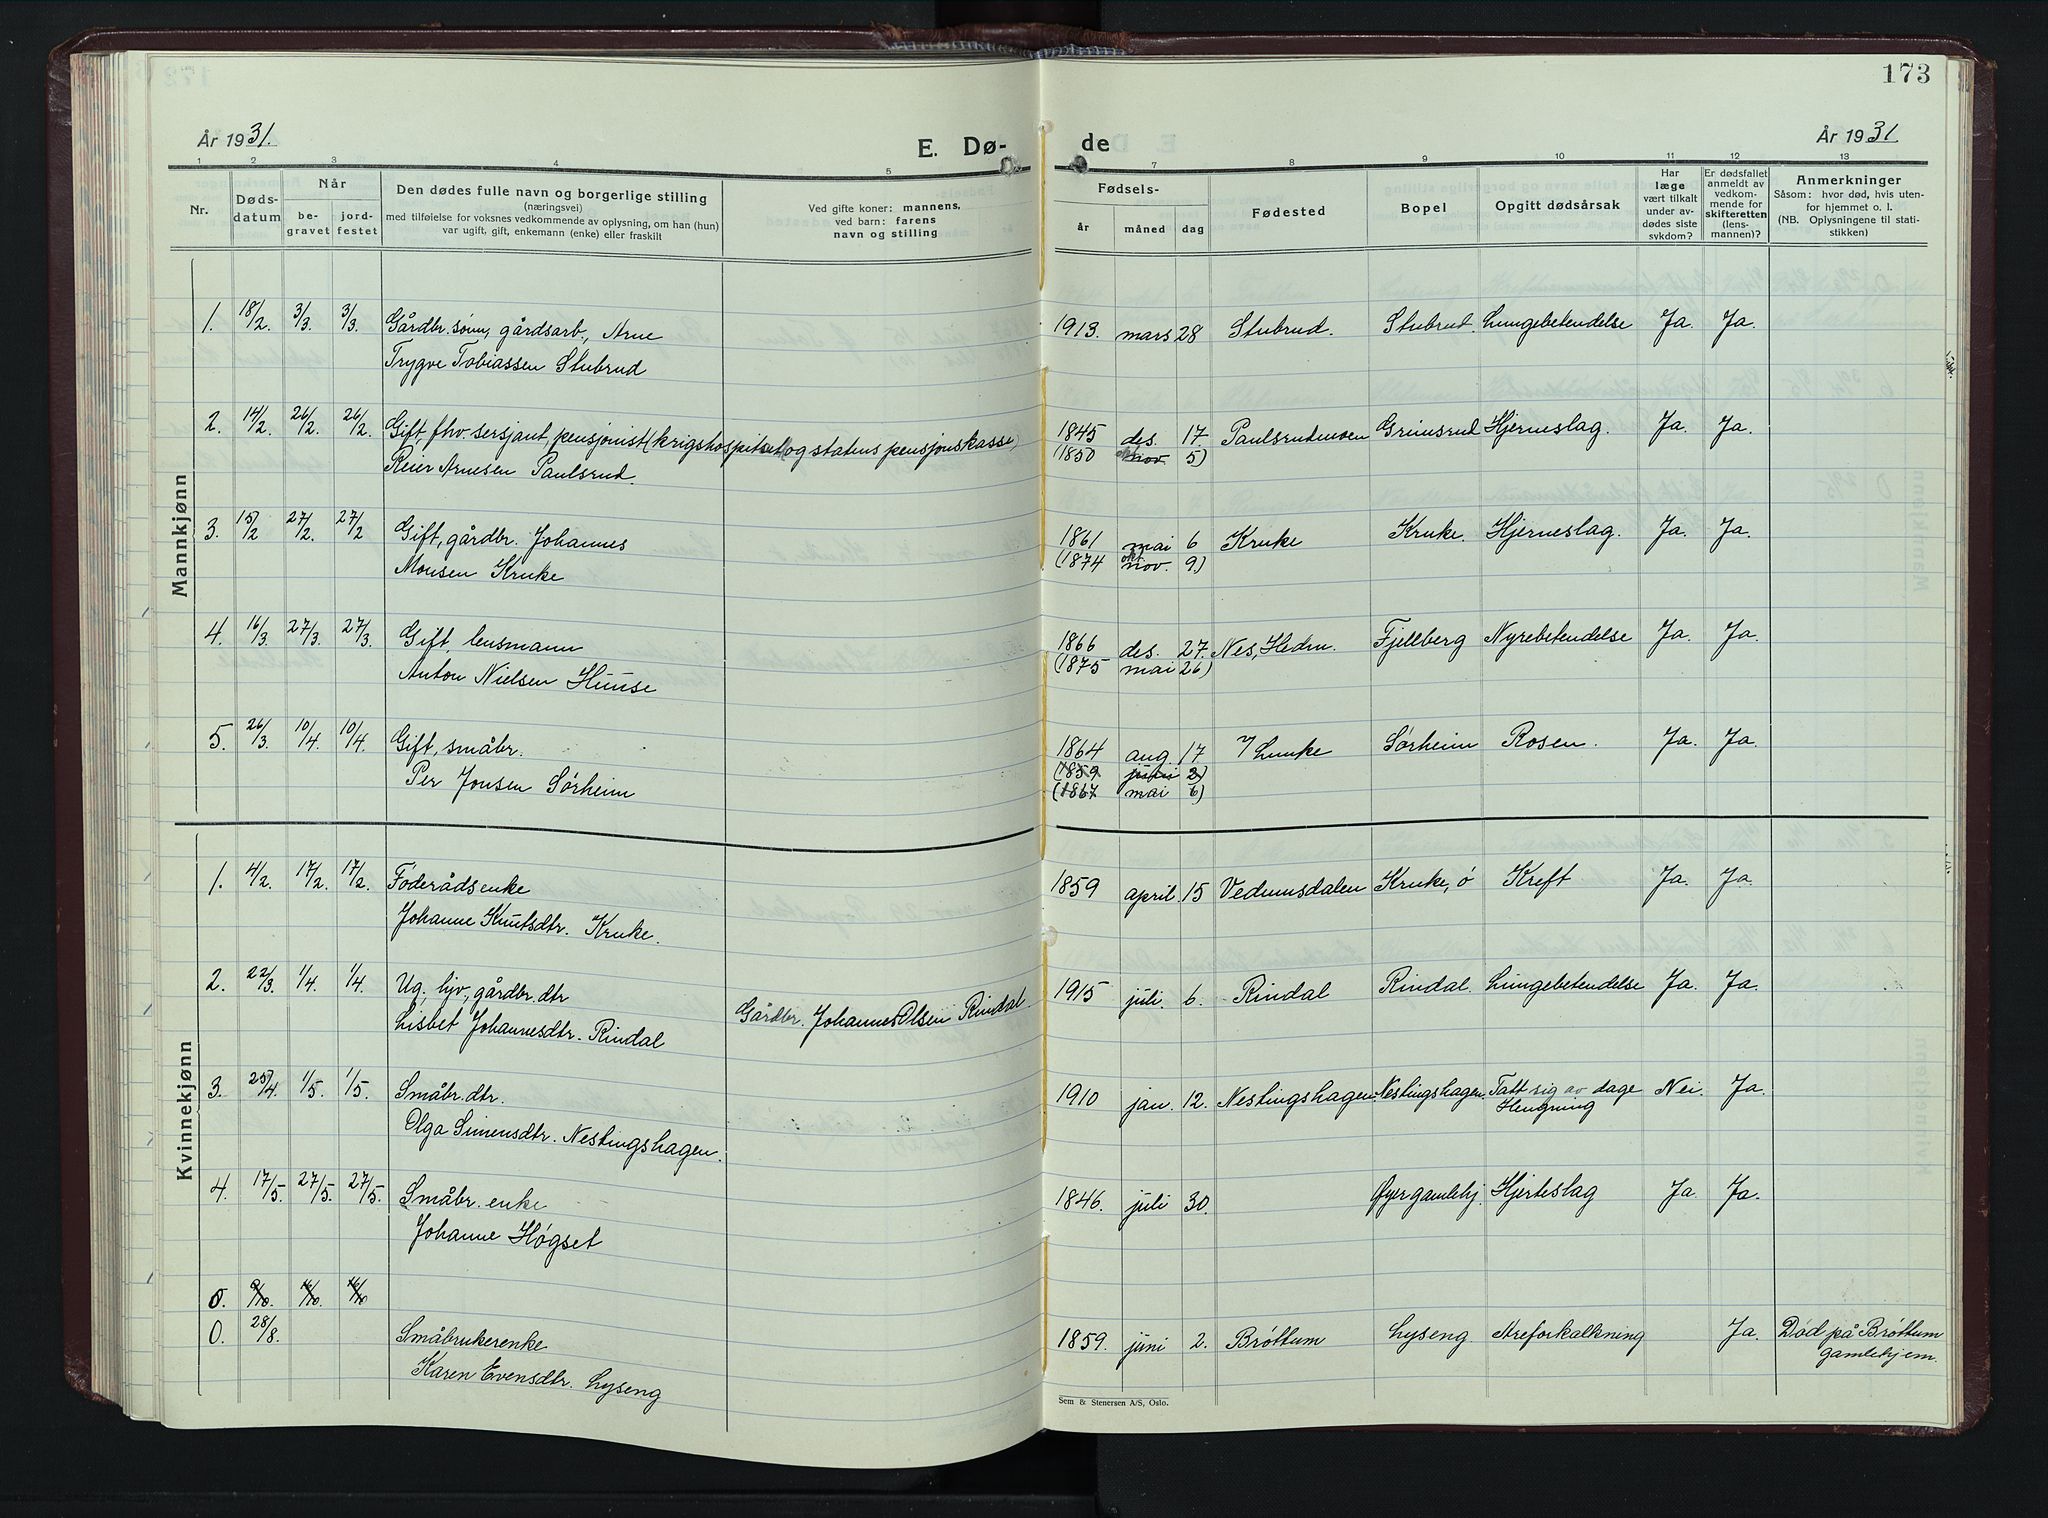 173
År 1931.
E. Dø-
de
År 1931
1 2 3 4 5 7 8 9 10 11 12 13
Nr.
Døds-
datum
Når
be-
gravet
jord-
festet
Den dødes fulle navn og borgerlige stilling
(næringsvei)
med tilføielse for voksnes vedkommende av oplysning, om han (hun)
var ugift, gift, enkemann (enke) eller fraskilt
Ved gifte koner: mannens,
ved barn: farens
navn og stilling
Fødsels-
år måned dag
Fødested
Bopel
Opgitt dødsårsak
Har
læge
vært tilkalt
under av-
dødes siste
sykdom?
Er dødsfallet
anmeldt av
vedkom-
mende for
skifteretten
(lens-
mannen)?
Anmerkninger
Såsom: hvor død, hvis uten-
for hjemmet o. l.
(NB. Oplysningene til stati-
stikken)
Mannkjønn
1. 18/2. 3/3. 3/3. Gårdbr. sønn, gårdsarb., Arne 1913. mars 28 Stubrud. Stubrud. Lungebetendelse Ja. Ja.
Trygve Tobiassen Stubrud
2. 14/2. 26/2. 26/2. Gift, fhv. sersjant, pensjonist (krigshospitset og statens pensjonskasse) 1845 des. 17. Paulsrudmoen Grimsrud Hjerneslag. Ja. Ja.
Reier Arnesen Paulsrud. (1850 nov 5)
3. 15/2 27/2. 27/2 Gift, gårdbr. Johannes 1861 mai 6 Kruke Kruke. Hjerneslag. Ja. Ja.
Monsen Kruke (1874 okt nov. 9)
4. 16/3 27/3. 27/3 Gift, lensmann 1866 des. 27. Nes, Hedm. Fjellberg Nyrebetendelse Ja. Ja.
Anton Nielsen Huuse (1875 mai 26)
5. 26/3. 10/4. 10/4. Gift, småbr. 1864 aug. 17 Sørheim Rosen. Ja. Ja.
Per Jonsen Sørheim (1859 juni 2)
(1867 mai 6)
Kvinnekjønn
1. 4/2. 17/2. 17/2. Føderådsenke 1859 april 15 Vedumsdalen Kruke, ø Kreft Ja. Ja.
Johanne Knutsdtr. Kruke.
2. 22/3. 1/4. 1/4. Ug., hjv., gårdbr. dtr Gårdbr. Johannes Olsen Rindal 1915 juli 6. Rindal Rindal. Lungebetendelse Ja. Ja.
Lisbet Johannesdtr. Rindal
3. 25/4. 1/5. 1/5. Småbr. dtr. 1910 jan. 12. Nestingshagen Nestingshagen. Tatt sig av dage Nei Ja.
Olga Simensdtr. Nestingshagen. Hengning
4. 17/5. 27/5. 27/5. Småbr. enke 1846. juli 30. Øyer gamlehj. Hjerteslag Ja. Ja.
Johanne Høgset
5. 9/10. 16/10. 16/10
0. 28/8. Småbrukerenke 1859. juni 2. Brøttum Lyseng Areforkalkning Ja. Død på Brøttum
Karen Evensdtr. Lyseng gamlehjem.
Sem & Stenersen A/S, Oslo.